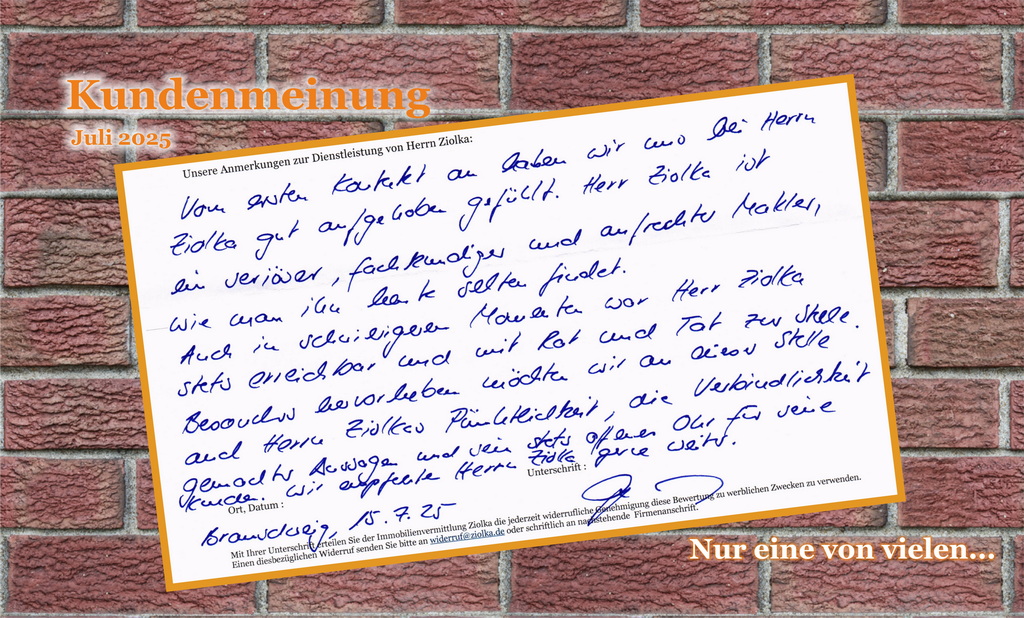 Kundenmeinung
Juli 2025
Unsere Anmerkungen zur Dienstleistung von Herrn Ziolka:
Vom ersten Kontakt an haben wir uns bei Herrn
Ziolka gut aufgehoben gefühlt. Herr Ziolka ist
ein seriöser, fachkundiger und aufrechter Makler,
wie man ihn heute selten findet.
Auch in schwierigeren Momenten war Herr Ziolka
stets erreichbar und mit Rat und Tat zur Stelle.
Besonders hervorheben möchten wir an dieser Stelle
auch Herrn Ziolkas Pünktlichkeit, die Verbindlichkeit
gemachter Aussagen und sein stets offenes Ohr für seine
Kunden. Wir empfehlen Herrn Ziolka gerne weiter.
Ort, Datum :
Unterschrift :
Braunschweig, 15.7.25
Mit Ihrer Unterschrift erteilen Sie der Immobilienvermittlung Ziolka die jederzeit widerrufliche Genehmigung diese Bewertung zu werblichen Zwecken zu verwenden.
Einen diesbezüglichen Widerruf senden Sie bitte an widerruf@ziolka.de oder schriftlich an nachstehende Firmenanschrift.
Nur eine von vielen...